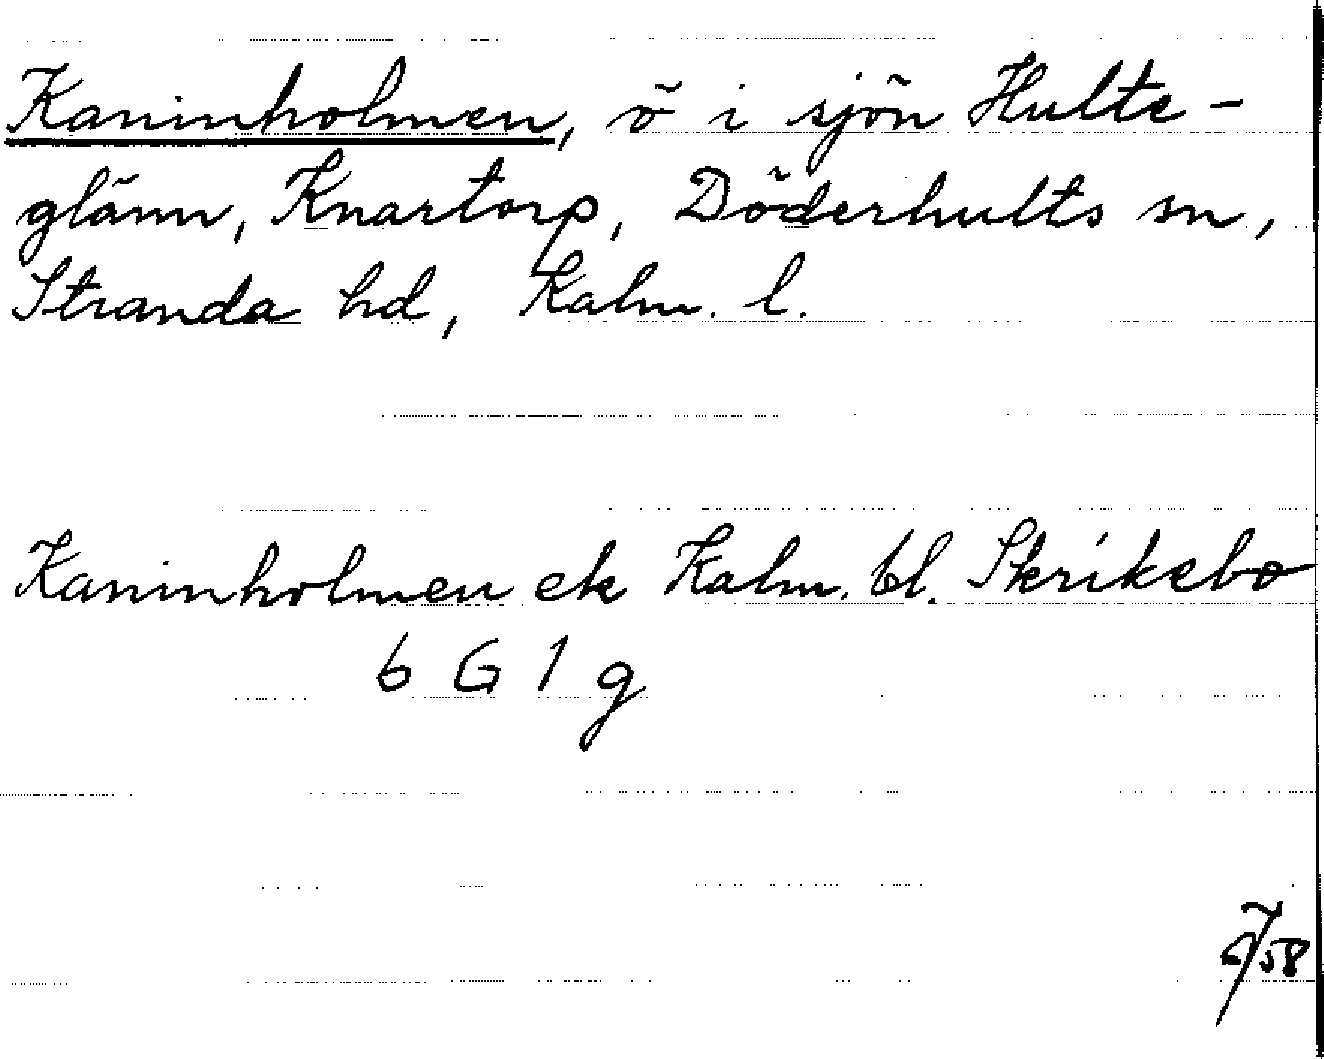 Kaninholmen, ö i sjön Hulte-
glänn, Knartorp, Döderhults sn,
Stranda hd, Kalm. l.
Kaninholmen ek Kalm. bl. Skriksbo
6 G 1 g